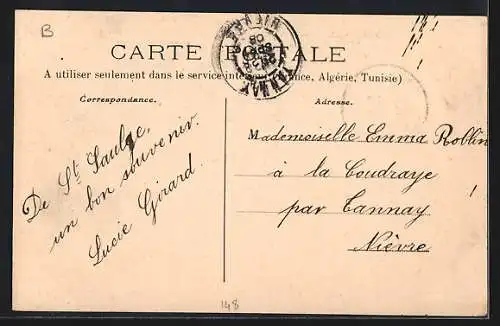 B
CARTE POSTALE
A utiliser seulement dans le service intérieur (France, Algérie, Tunisie)
Correspondance.
Adresse.
De St Saulge,
un bon souvenir.
Lucie Girard.
TANNAY
NIÈVRE
Mademoiselle Emma Roblin
à la Coudraye
par Tannay
Nièvre
148